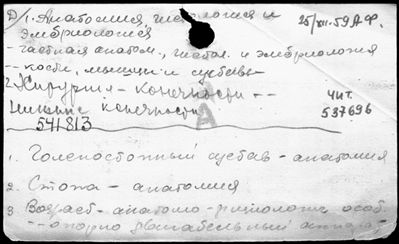 1. Анатомия, гистология и 25/XII.59
эмбриология
- частная анатом., гистол. и эмбриология
-- кости, мышцы и суставы
2. Хирургия - конечности --
Нижние конечности 537696
541813
А
1. Голеностопный сустав - анатомия
2. Стопа - анатомия
3 Возраст - анатомо-физиолог. особ.
-- опорно двигательный аппарат